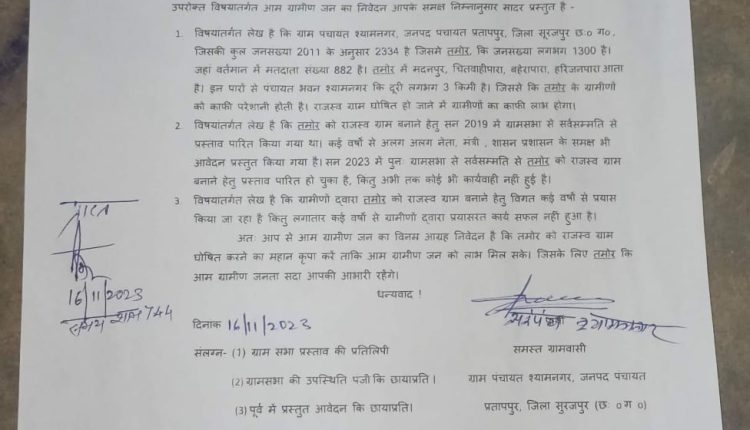 उपरोक्त विषयातर्गत आम ग्रामीण जन का निवेदन आपके समक्ष निम्नानुसार सादर प्रस्तुत है -
1. विषयांतर्गत लेख है कि ग्राम पंचायत श्यामनगर, जनपद पंचायत प्रतापपुर, जिला सूरजपुर छ० ग०,
जिसकी कुल जनसंख्या 2011 के अनुसार 2334 है जिसमे तमोर, कि जनसंख्या लगभग 1300 है।
जहां वर्तमान में मतदाता संख्या 882 है। तमोर में मदनपुर, चितवाहीपारा, बहेरापारा, हरिजनपारा आता
है। इन पारों से पंचायत भवन श्यामनगर कि दूरी लगभग 3 किमी है। जिससे कि तमोर के ग्रामीणों
को काफी परेशानी होती है। राजस्व ग्राम घोषित हो जाने में ग्रामीणों का काफी लाभ होगा।
2. विषयांतर्गत लेख है कि तमोर को राजस्व ग्राम बनाने हेतु सन 2019 में ग्रामसभा से सर्वसम्मति से
प्रस्ताव पारित किया गया था। कई वर्षों से अलग अलग नेता, मंत्री , शासन प्रशासन के समक्ष भी
आवेदन प्रस्तुत किया गया है। सन 2023 में पुनः ग्रामसभा से सर्वसम्मति से तमोर को राजस्व ग्राम
बनाने हेतु प्रस्ताव पारित हो चुका है, किंतु अभी तक कोई भी कार्यवाही नही हुई है।
3. विषयांतर्गत लेख है कि ग्रामीणों द्वारा तमोर को राजस्व ग्राम बनाने हेतु विगत कई वर्षों से प्रयास
किया जा रहा है किंतु लगातार कई वर्षों से ग्रामीणों द्वारा प्रयासरत कार्य सफल नही हुआ है।
अतः आप से आम ग्रामीण जन का विनम्र आग्रह निवेदन है कि तमोर को राजस्व ग्राम
घोषित करने का महान कृपा करें ताकि आम ग्रामीण जन को लाभ मिल सके। जिसके लिए तमोर कि
आम ग्रामीण जनता सदा आपकी आभारी रहेंगे।
धन्यवाद !
16/11/2023
दिनांक 16/11/2023
सरपंच
संलग्न- (1) ग्राम सभा प्रस्ताव की प्रतिलिपी
समस्त ग्रामवासी
(2) ग्रामसभा की उपस्थिति पंजी कि छायाप्रति ।
ग्राम पंचायत श्यामनगर, जनपद पंचायत
(3) पूर्व में प्रस्तुत आवेदन कि छायाप्रति।
प्रतापपुर, जिला सुरजपुर (छ ० ग ०)